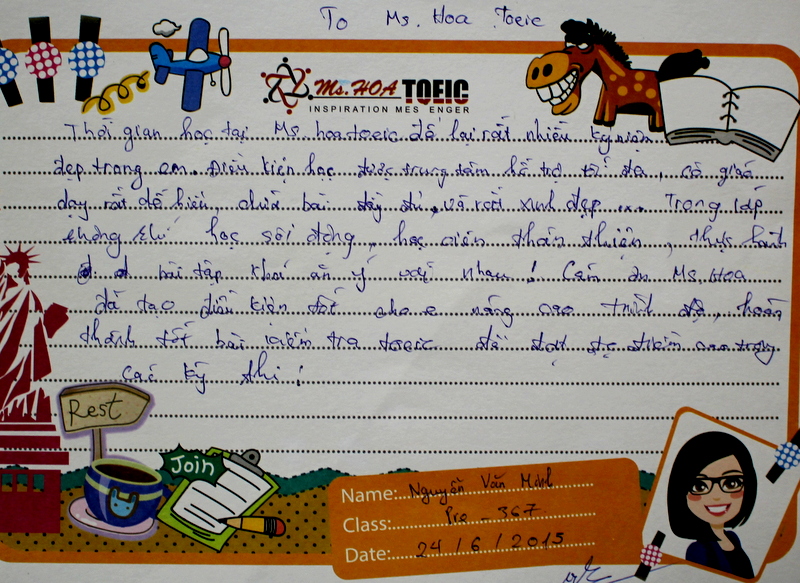 To Ms. Hoa Toeic
Ms. HOA TOEIC
INSPIRATION MES ENGER
Thời gian học tại Ms. hoa toeic để lại rất nhiều kỷ niệm
đẹp trong em. Điều kiện học được trung tâm hỗ trợ tối đa, cô giáo
dạy rất dễ hiểu, chữa bài đầy đủ, và rất xinh đẹp ... Trong lớp
không khí học sôi động, học viên thân thiện, thực hành
bài tập khá ăn ý với nhau! Cám ơn Ms. Hoa
đã tạo điều kiện tốt cho e nâng cao trình độ, hoàn
thành tốt bài kiểm tra toeic để đạt điểm cao trong
các kỳ thi!
Rest
Join
Name: Nguyễn Văn Minh
Class: Pre - 367
Date: 24 / 6 / 2015